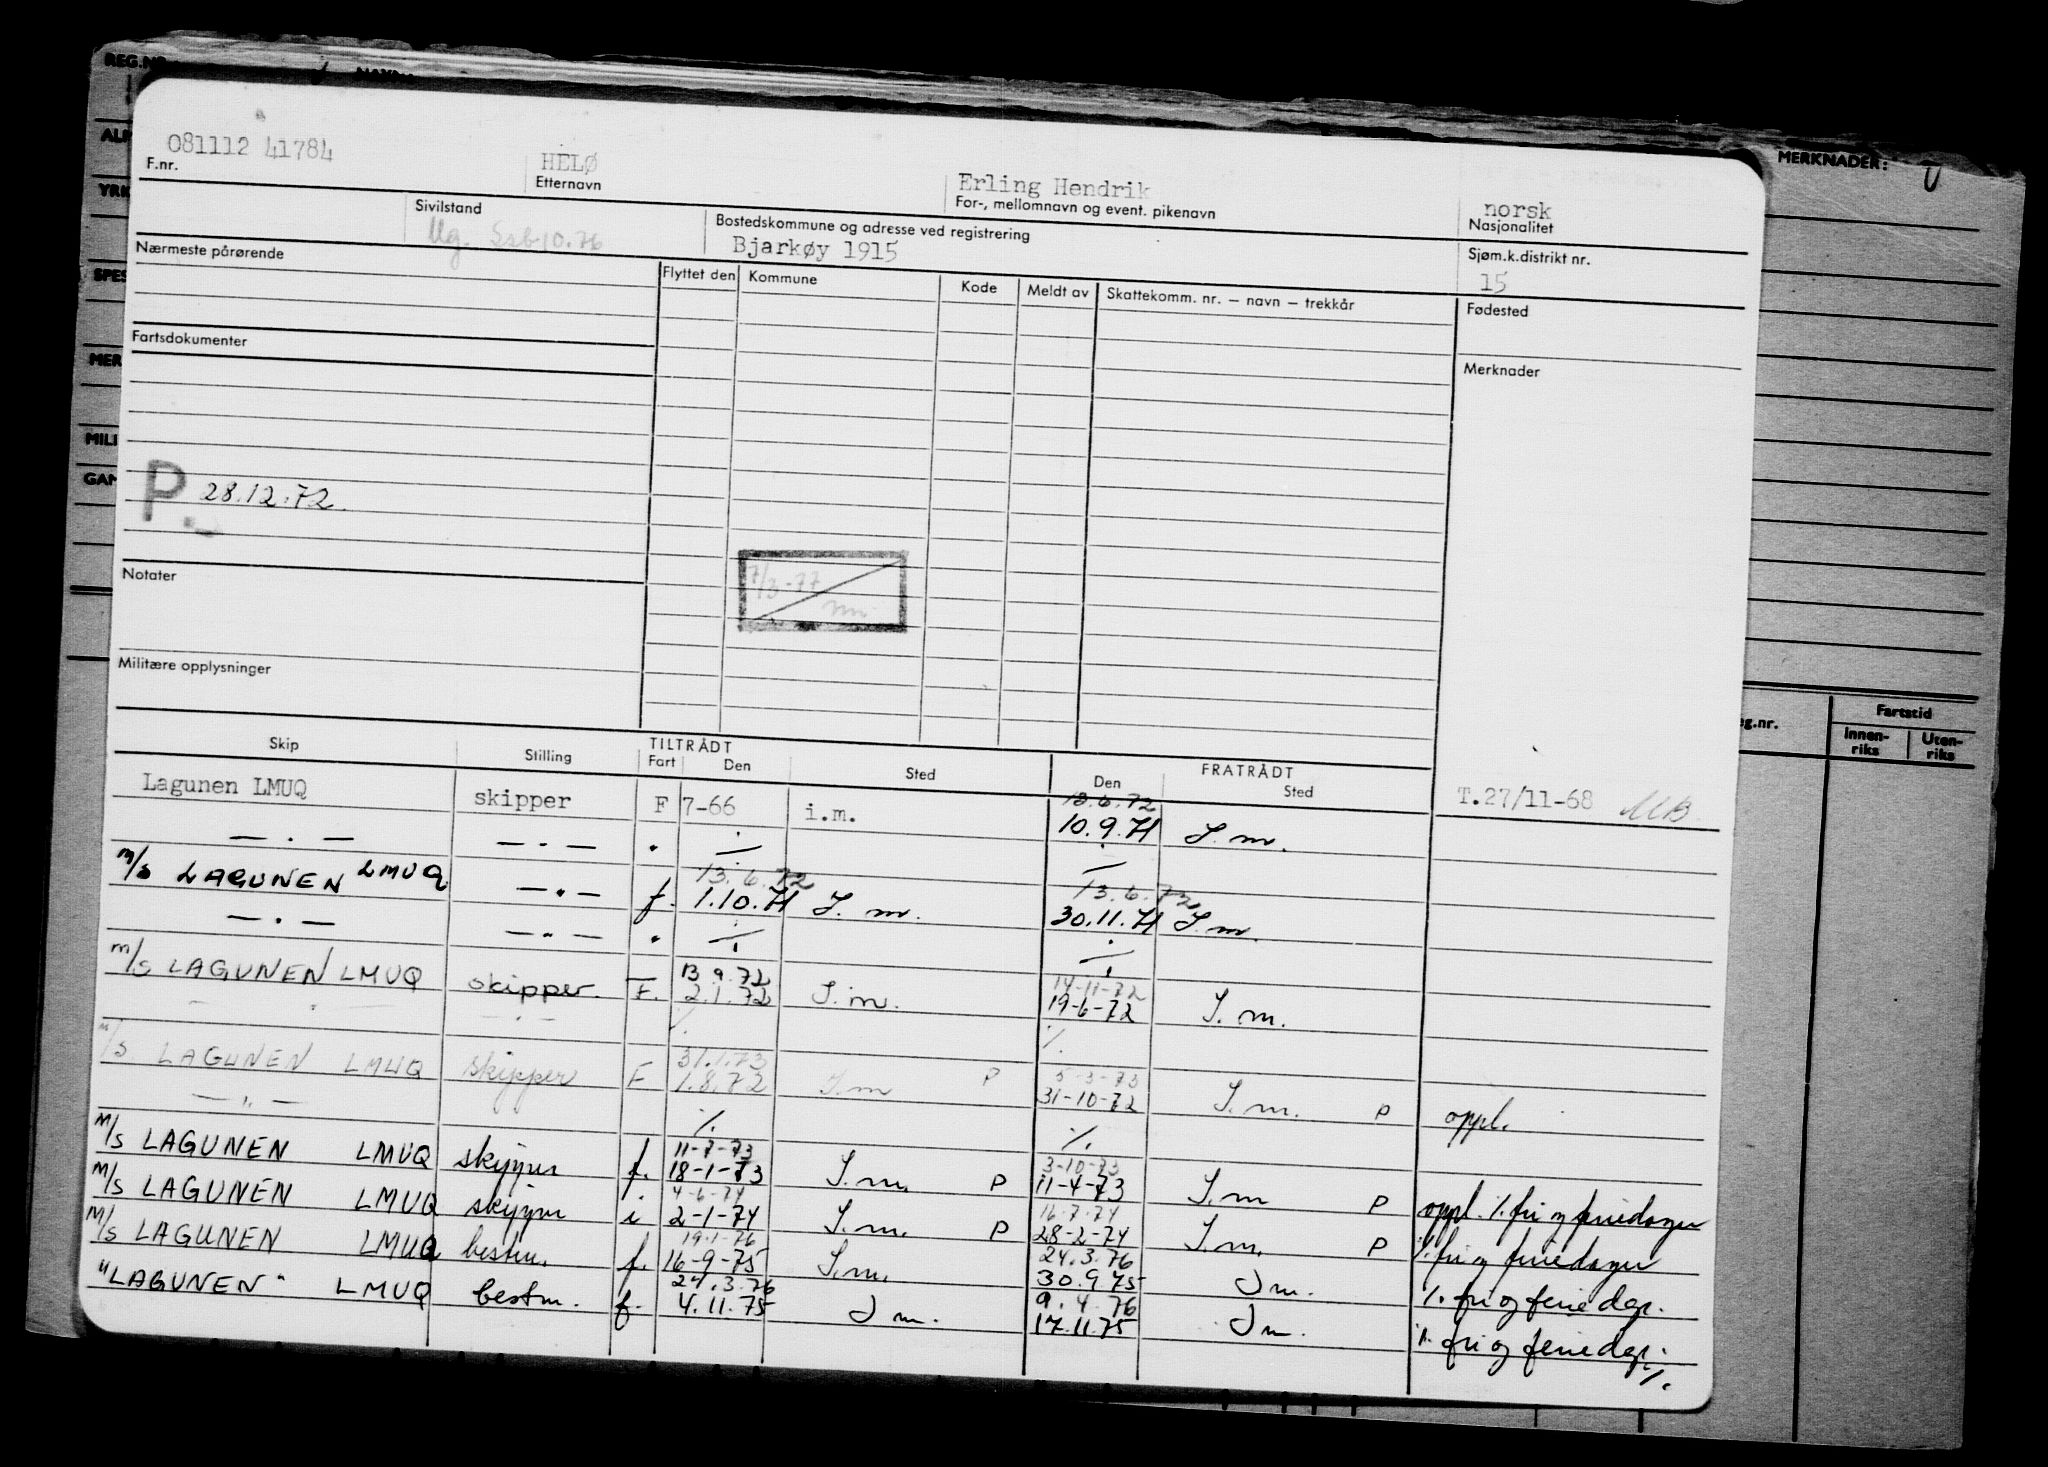 REG.NR. NAVN:
MERKNADER:
081112 41784 HELØ Erling Hendrik norsk
F.nr. Etternavn For-, mellomnavn og event. pikenavn Nasjonalitet
Sivilstand Bostedskommune og adresse ved registrering Sjøm.k.distrikt nr.
Ug. Bjarkøy 1915 15
Nærmeste pårørende Flyttet den Kommune Kode Meldt av Skattekomm. nr. — navn — trekkår Fødested
Fartsdokumenter Merknader
P 28.12.72.
7/3-77
Notater
Militære opplysninger
Skip Stilling TILTRÅDT FRATRÅDT
Fart Den Sted Den Sted
Lagunen LMUQ skipper F 7-66 i.m. 10.9.71 I.m. T.27/11-68 MB
— . — — . — . 13.6.72
m/s LAGUNEN LMUQ — " — f. 1.10.71 I. m. 30.11.71 I.m.
— . — — " — . 13.6.72 13.6.72
m/s LAGUNEN LMUQ skipper. F. 2.1.72 I.m. 19-6-72 I.m.
13.9.72 14-11-72
m/s LAGUNEN LMUQ skipper F 1.8.72 I.m P 31-10-72 I.m. P oppl.
— " — 31.1.73 5-3-73
m/s LAGUNEN LMUQ skipper f. 18-1-73 I.m. P 11-4-73 I.m P oppl. %. fri og feriedager
11-7-73 3-10-73
m/s LAGUNEN LMUQ skipper i 2-1-74 I.m. P 28-2-74 I.m. P %. fri og feriedager
4-6-74 16-7-74
m/s LAGUNEN LMUQ bestm. f. 16-9-75 I.m. 30.9.75 I m. %. fri og feriedgr.
19-1-76 24.3.76
"LAGUNEN" LMUQ bestm. f. 4.11.75 I m. 17.11.75 I m. %. fri og feriedgr.
24.3.76 9.4.76 %.
Fartstid
Innen-riks Uten-riks